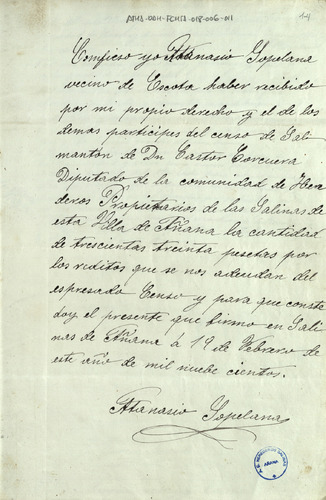 ATHA-DAH-FCHSA-018-006-011
Comfieso yo Atanasio Sopelana
vecino de Escota haber recibido
por mi propio derecho y el de los
demas participes del censo de Sal-
mantón de Dn Castor Corcuera
Diputado de la comunidad de Here-
deros Propietarios de las Salinas de
esta Villa de Añana la cantidad
de trescientas treinta pesetas por
los reditos que se nos adeudan del
espresado Censo y para que conste
doy el presente que firmo en Sali-
nas de Añana a 19 de Febrero de
este año de mil nuebe cientos.
Atanasio Sopelana
AÑANA